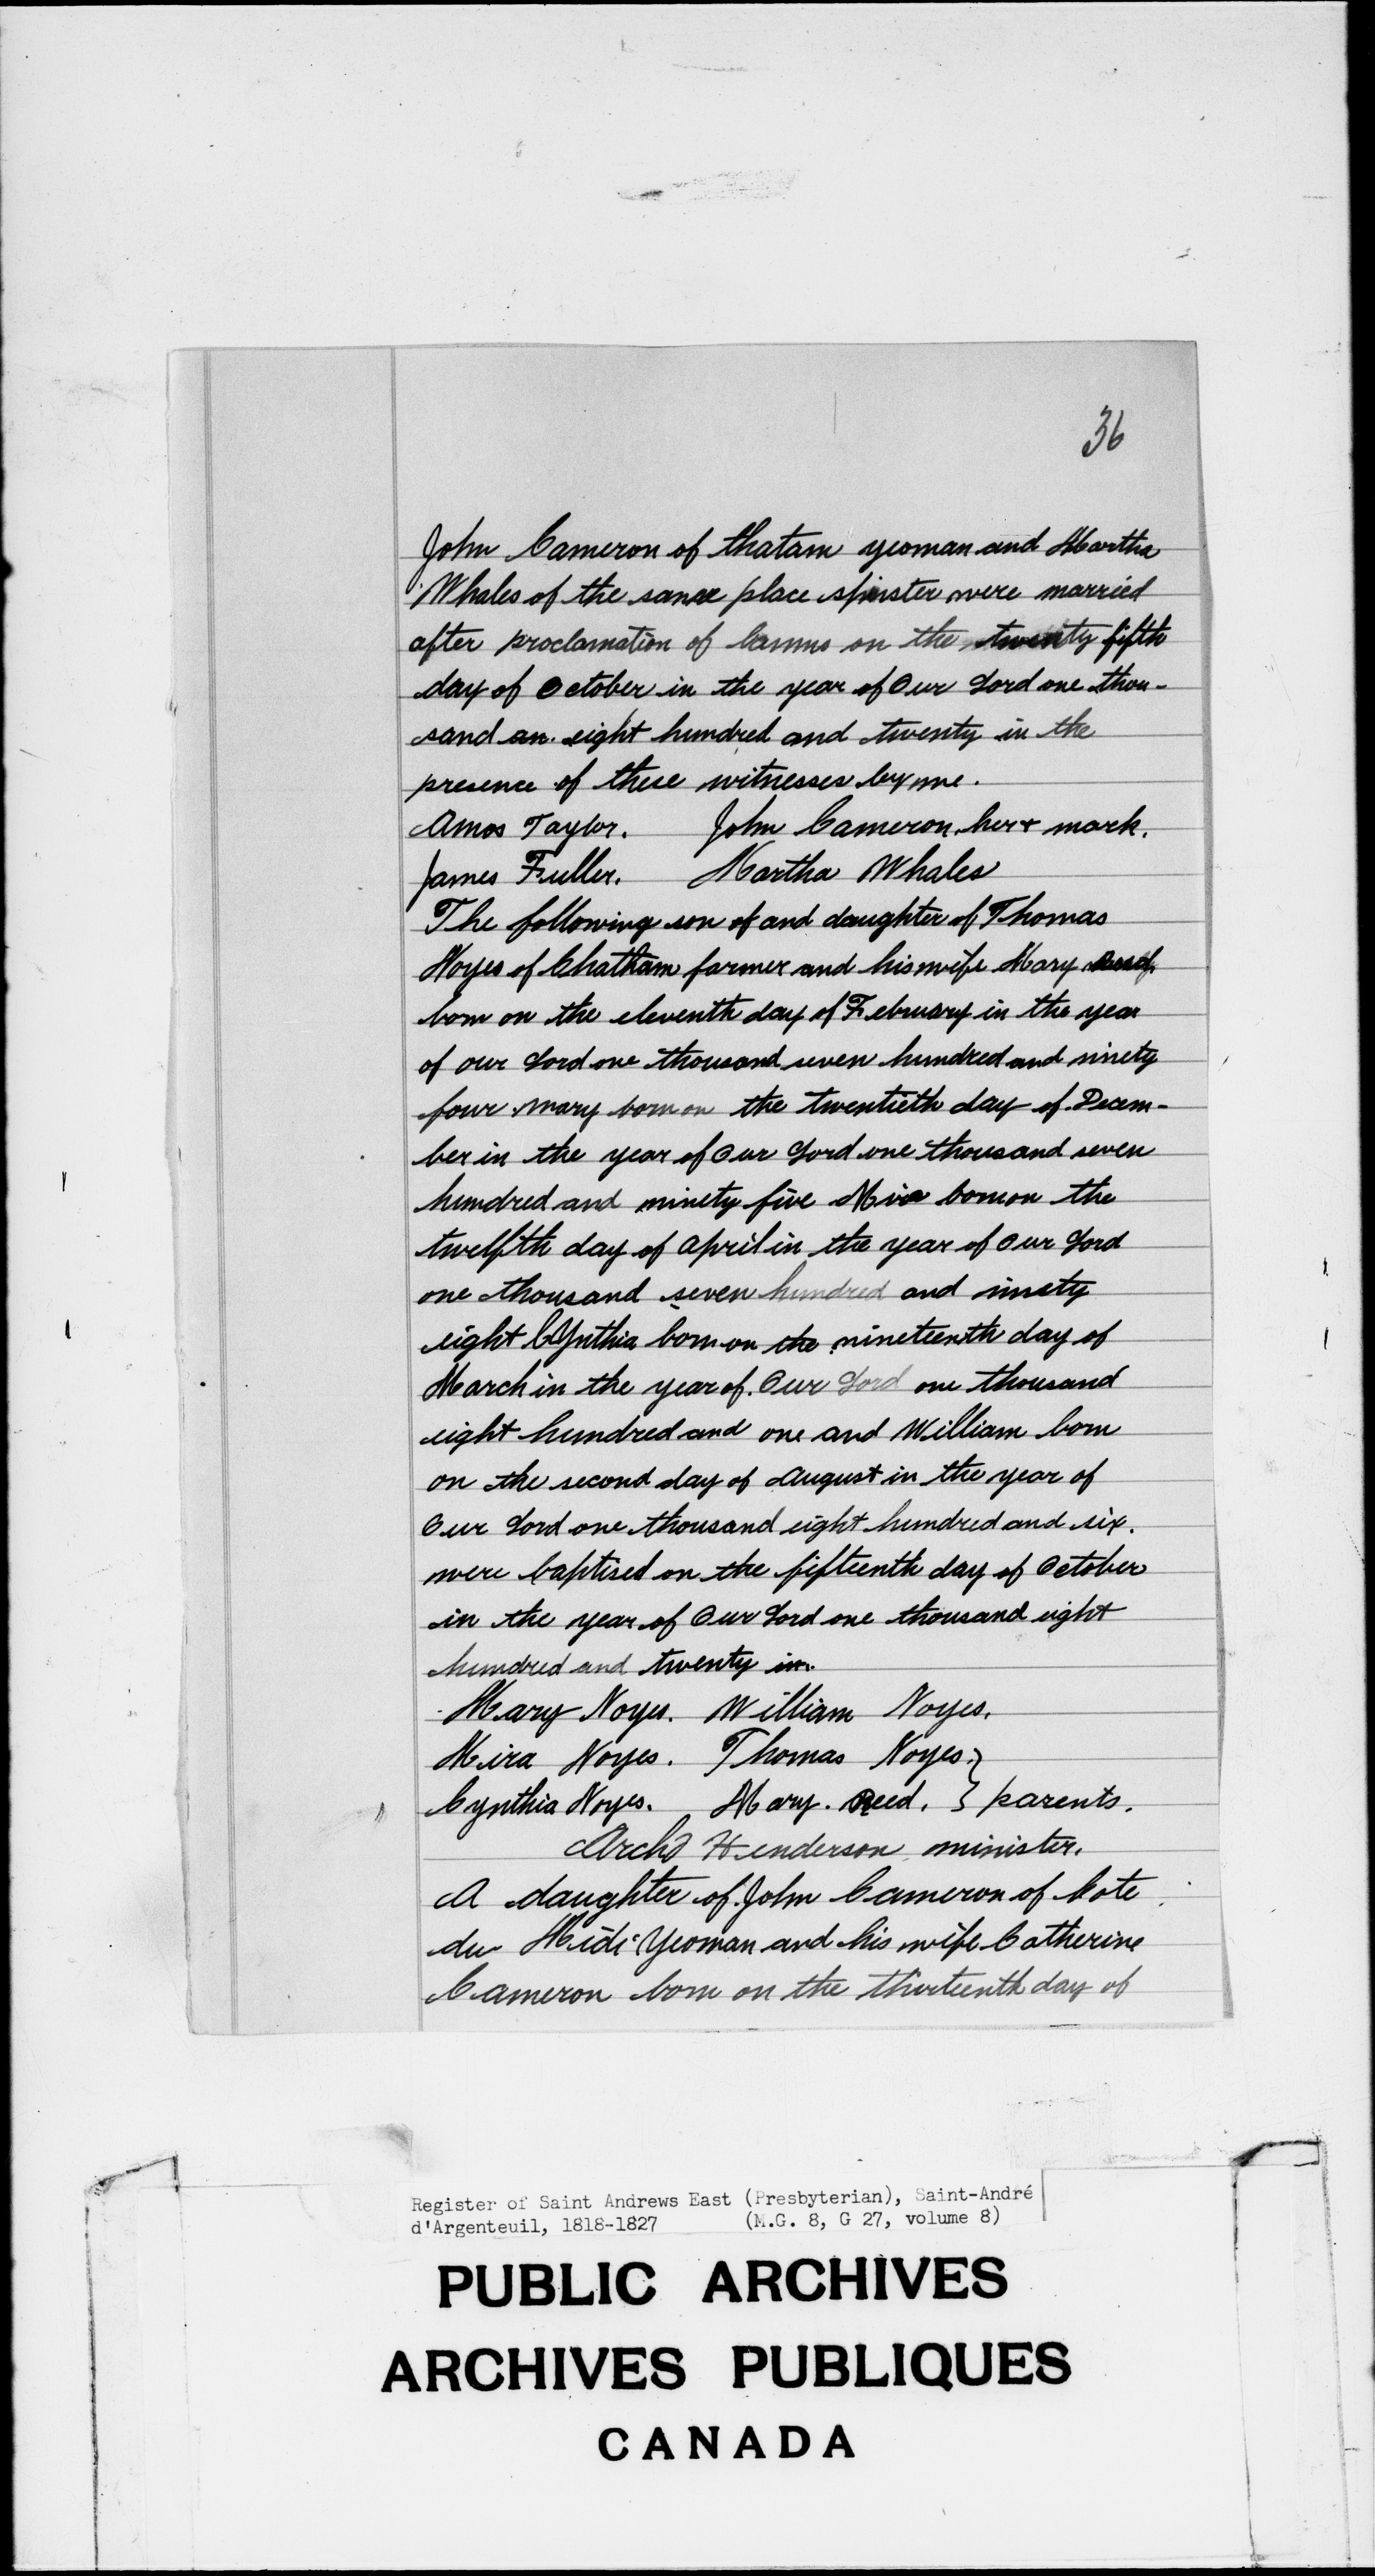 36
John Cameron of thatam yeoman and Martha
Whales of the same place spinster were married
after proclamation of banns on the twenty fifth
day of October in the year of Our Lord one thou-
sand an eight hundred and twenty in the
presence of these witnesses by me.
Amos Taylor. John Cameron her + mark.
James Fuller. Martha Whales
The following son of and daughter of Thomas
Noyes of Chatham farmer and his wife Mary
born on the eleventh day of February in the year
of our Lord one thousand seven hundred and ninety
four Mary born on the twentieth day of Decem-
ber in the year of Our Lord one thousand seven
hundred and ninety five Mira born on the
twelfth day of April in the year of Our Lord
one thousand seven hundred and ninety
eight Cynthia born on the nineteenth day of
March in the year of Our Lord one thousand
eight hundred and one and William born
on the second day of August in the year of
Our Lord one thousand eight hundred and six.
were baptised on the fifteenth day of October
in the year of Our Lord one thousand eight
hundred and twenty in.
Mary Noyes. William Noyes.
Mira Noyes. Thomas Noyes. }
Cynthia Noyes. Mary Reed. } parents.
Archd Henderson minister.
A daughter of John Cameron of Cote
du Midi Yeoman and his wife Catherine
Cameron born on the thirteenth day of
Register of Saint Andrews East (Presbyterian), Saint-André
d'Argenteuil, 1818-1827 (M.G. 8, G 27, volume 8)
PUBLIC ARCHIVES
ARCHIVES PUBLIQUES
CANADA